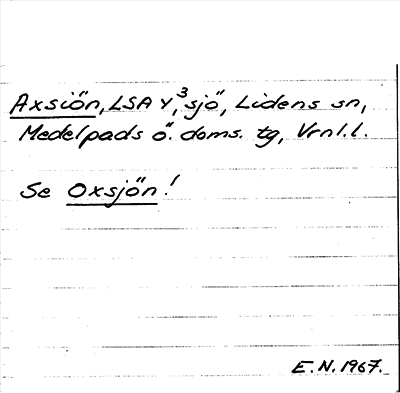 Axsiön, LSA Y, ³sjö, Lidens sn,
Medelpads ö. doms. tg, Vrnl.l.
Se Oxsjön!
E.N. 1967.